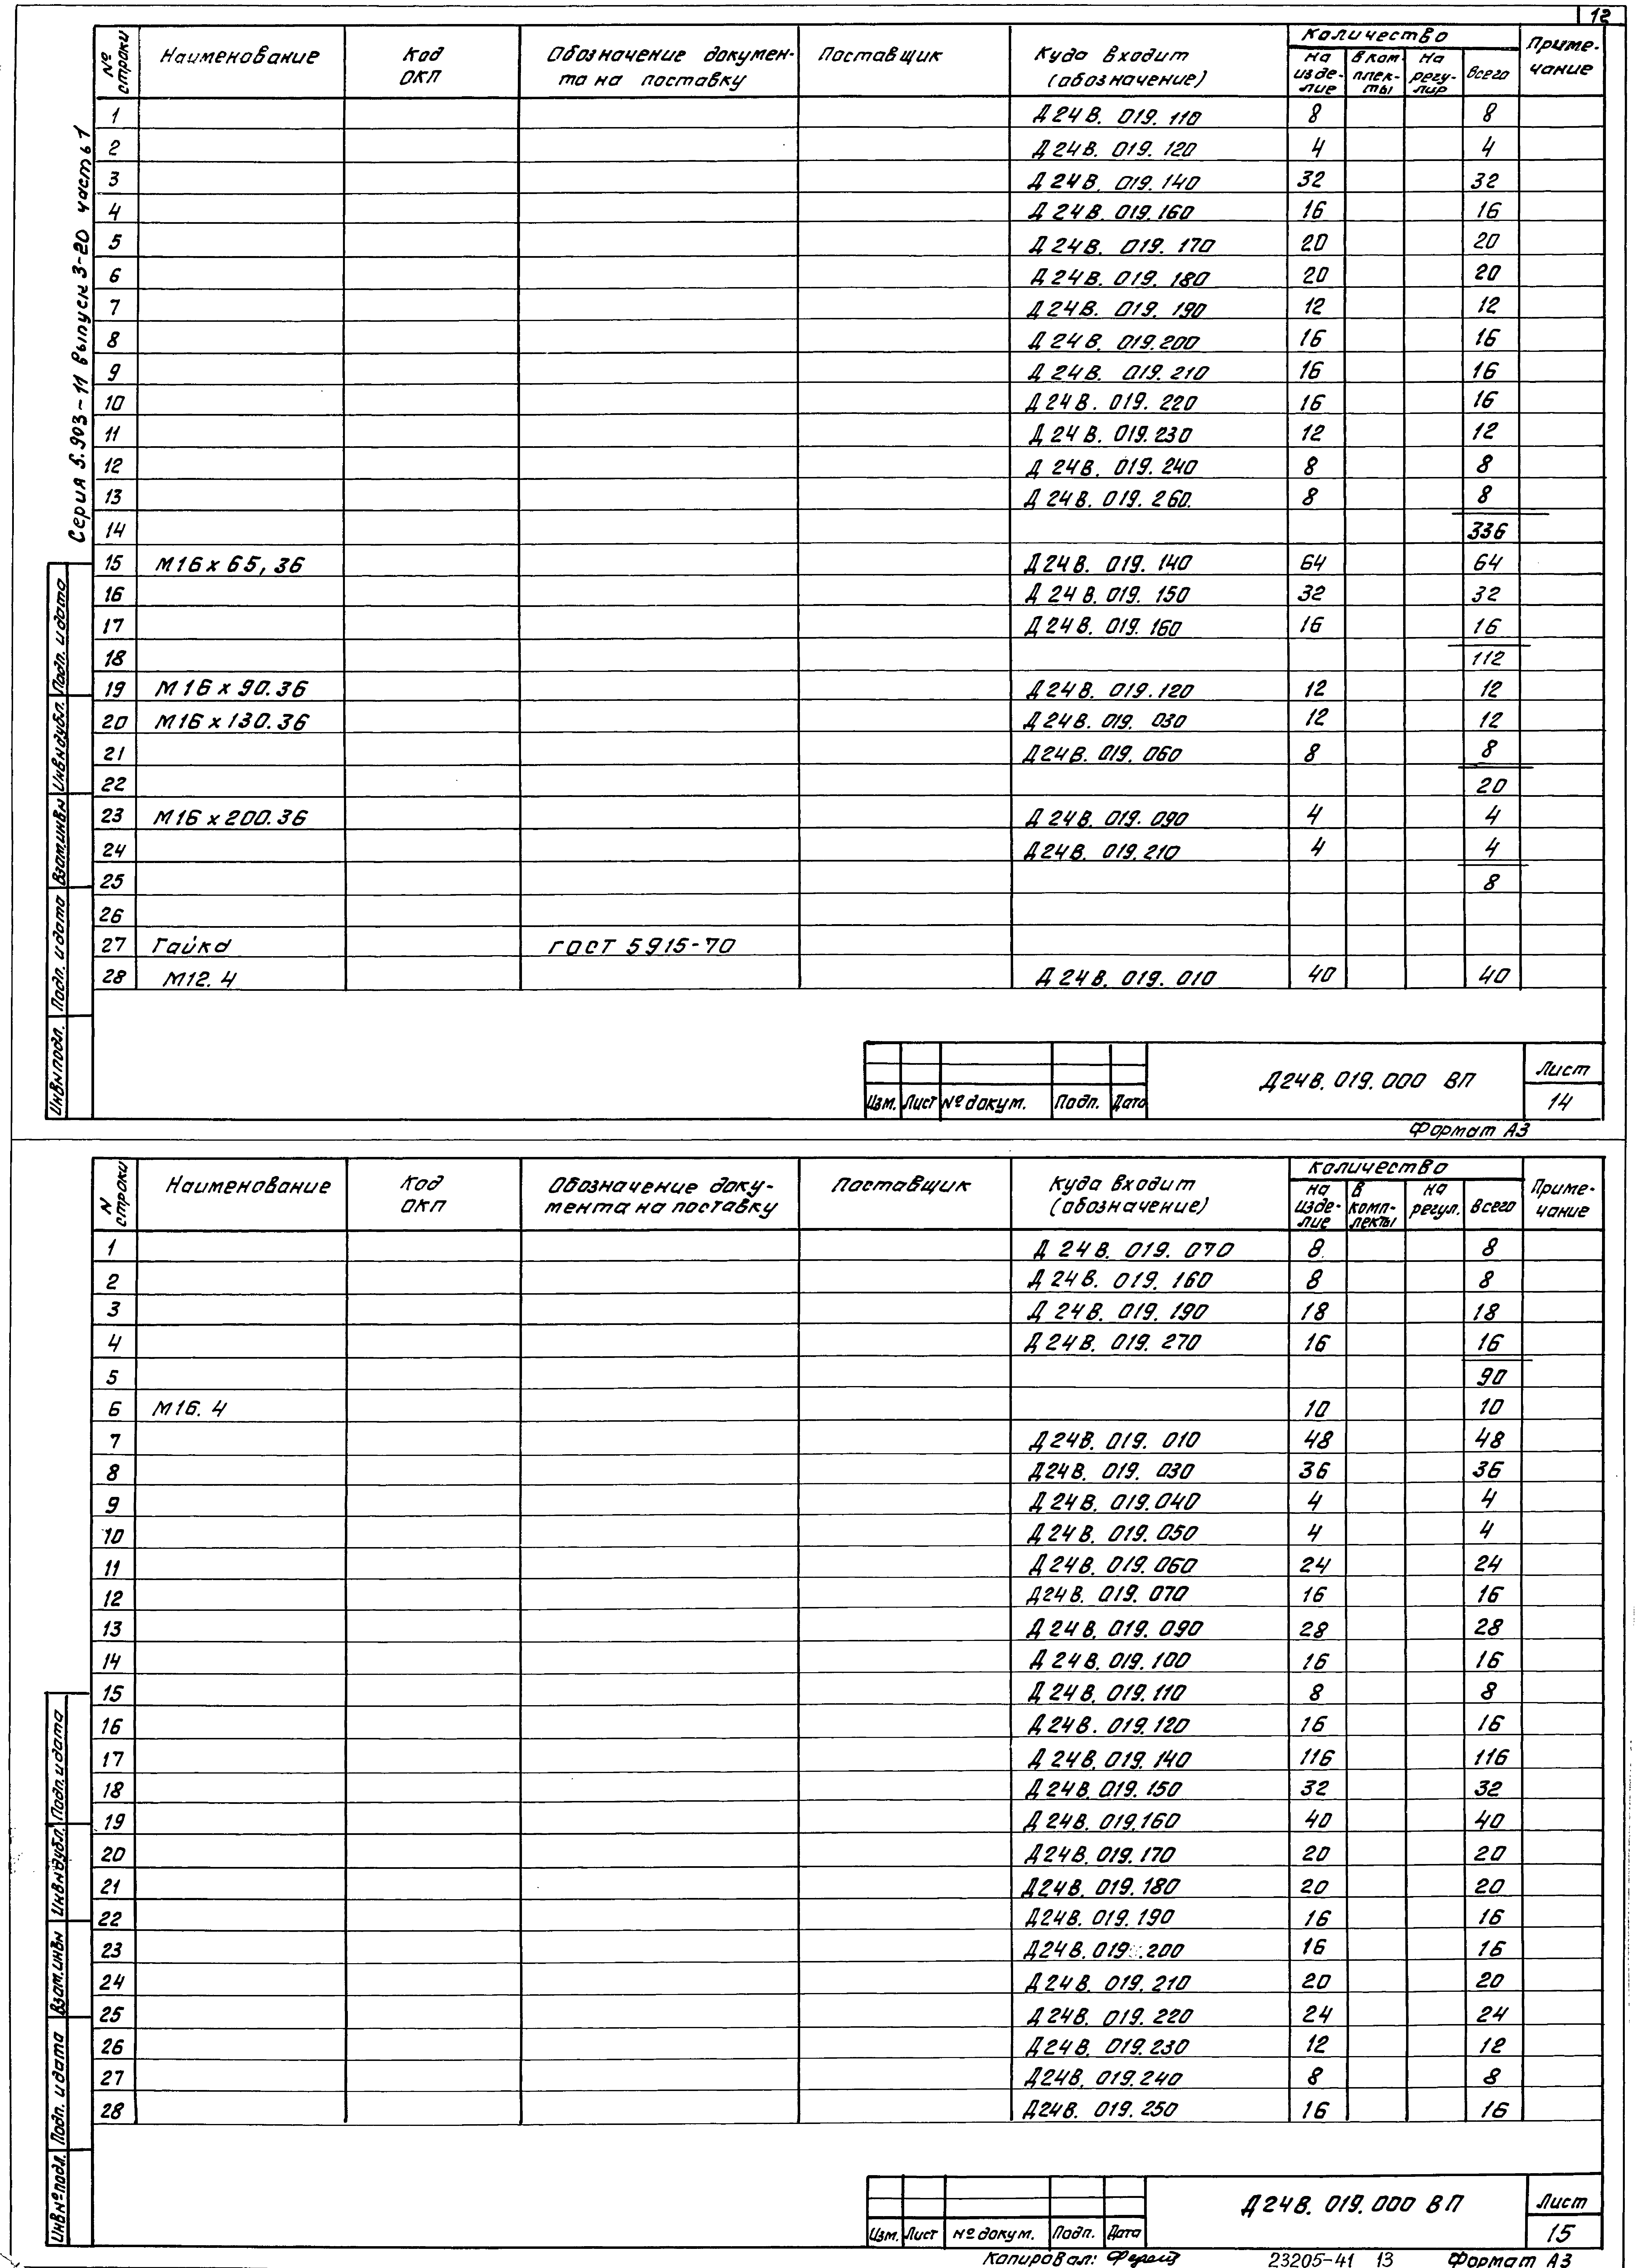 12
Серия 5.903-11 Выпуск 3-20 часть 1
№ строки | Наименование | Код ОКП | Обозначение докумен-та на поставку | Поставщик | Куда входит (обозначение) | Количество | Приме-чание
на изде-лие | В ком плек-ты | На регу-лир | Всего
1 Д24В.019.110 8 8
2 Д24В.019.120 4 4
3 Д24В.019.140 32 32
4 Д24В.019.160 16 16
5 Д24В.019.170 20 20
6 Д24В.019.180 20 20
7 Д24В.019.190 12 12
8 Д24В.019.200 16 16
9 Д24В.019.210 16 16
10 Д24В.019.220 16 16
11 Д24В.019.230 12 12
12 Д24В.019.240 8 8
13 Д24В.019.260. 8 8
14 336
15 М16х65,36 Д24В.019.140 64 64
16 Д24В.019.150 32 32
17 Д24В.019.160 16 16
18 112
19 М16х90.36 Д24В.019.120 12 12
20 М16х130.36 Д24В.019.030 12 12
21 Д24В.019.060 8 8
22 20
23 М16х200.36 Д24В.019.090 4 4
24 Д24В.019.210 4 4
25 8
26
27 Гайка ГОСТ 5915-70
28 М12.4 Д24В.019.010 40 40
Инв№подл. Подп. и дата Взам.инв№ Инв№дубл. Подп. и дата
Изм. Лист № докум. Подп. Дата
Д24В.019.000 ВП
Лист
14
Формат А3
№ строки | Наименование | Код ОКП | Обозначение доку-мента на поставку | Поставщик | Куда входит (обозначение) | Количество | Приме-чание
на изде-лие | в комп-лекты | на регул. | Всего
1 Д24В.019.070 8 8
2 Д24В.019.160 8 8
3 Д24В.019.190 18 18
4 Д24В.019.270 16 16
5 90
6 М16.4 10 10
7 Д24В.019.010 48 48
8 Д24В.019.030 36 36
9 Д24В.019.040 4 4
10 Д24В.019.050 4 4
11 Д24В.019.060 24 24
12 Д24В.019.070 16 16
13 Д24В.019.090 28 28
14 Д24В.019.100 16 16
15 Д24В.019.110 8 8
16 Д24В.019.120 16 16
17 Д24В.019.140 116 116
18 Д24В.019.150 32 32
19 Д24В.019.160 40 40
20 Д24В.019.170 20 20
21 Д24В.019.180 20 20
22 Д24В.019.190 16 16
23 Д24В.019.200 16 16
24 Д24В.019.210 20 20
25 Д24В.019.220 24 24
26 Д24В.019.230 12 12
27 Д24В.019.240 8 8
28 Д24В.019.250 16 16
Инв№подл. Подп. и дата Взам.инв№ Инв№дубл. Подп. и дата
Изм. Лист № докум. Подп. Дата
Д24В.019.000 ВП
Лист
15
Копировал: 23205-41 13 Формат А3